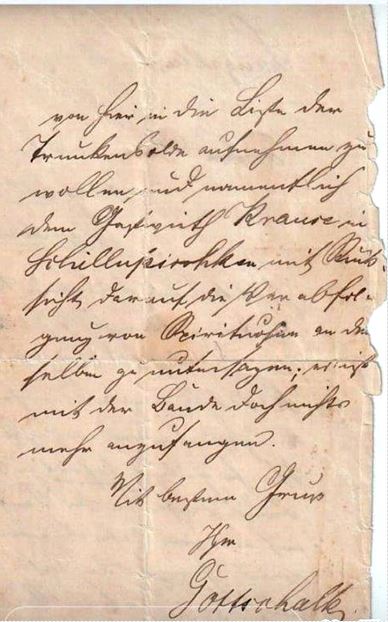 von hier in die Liste der
Trunkenbolde aufnehmen zu
wollen und namentlich
dem Gastwirth Krause in
Schillupischken mit Rück-
sicht darauf, die Verabfol-
gung von Spirituosen an den
selben zu untersagen; es ist
mit der Bande doch nichts
mehr anzufangen.
Mit bestem Gruß
Ihr
Gottschalk.